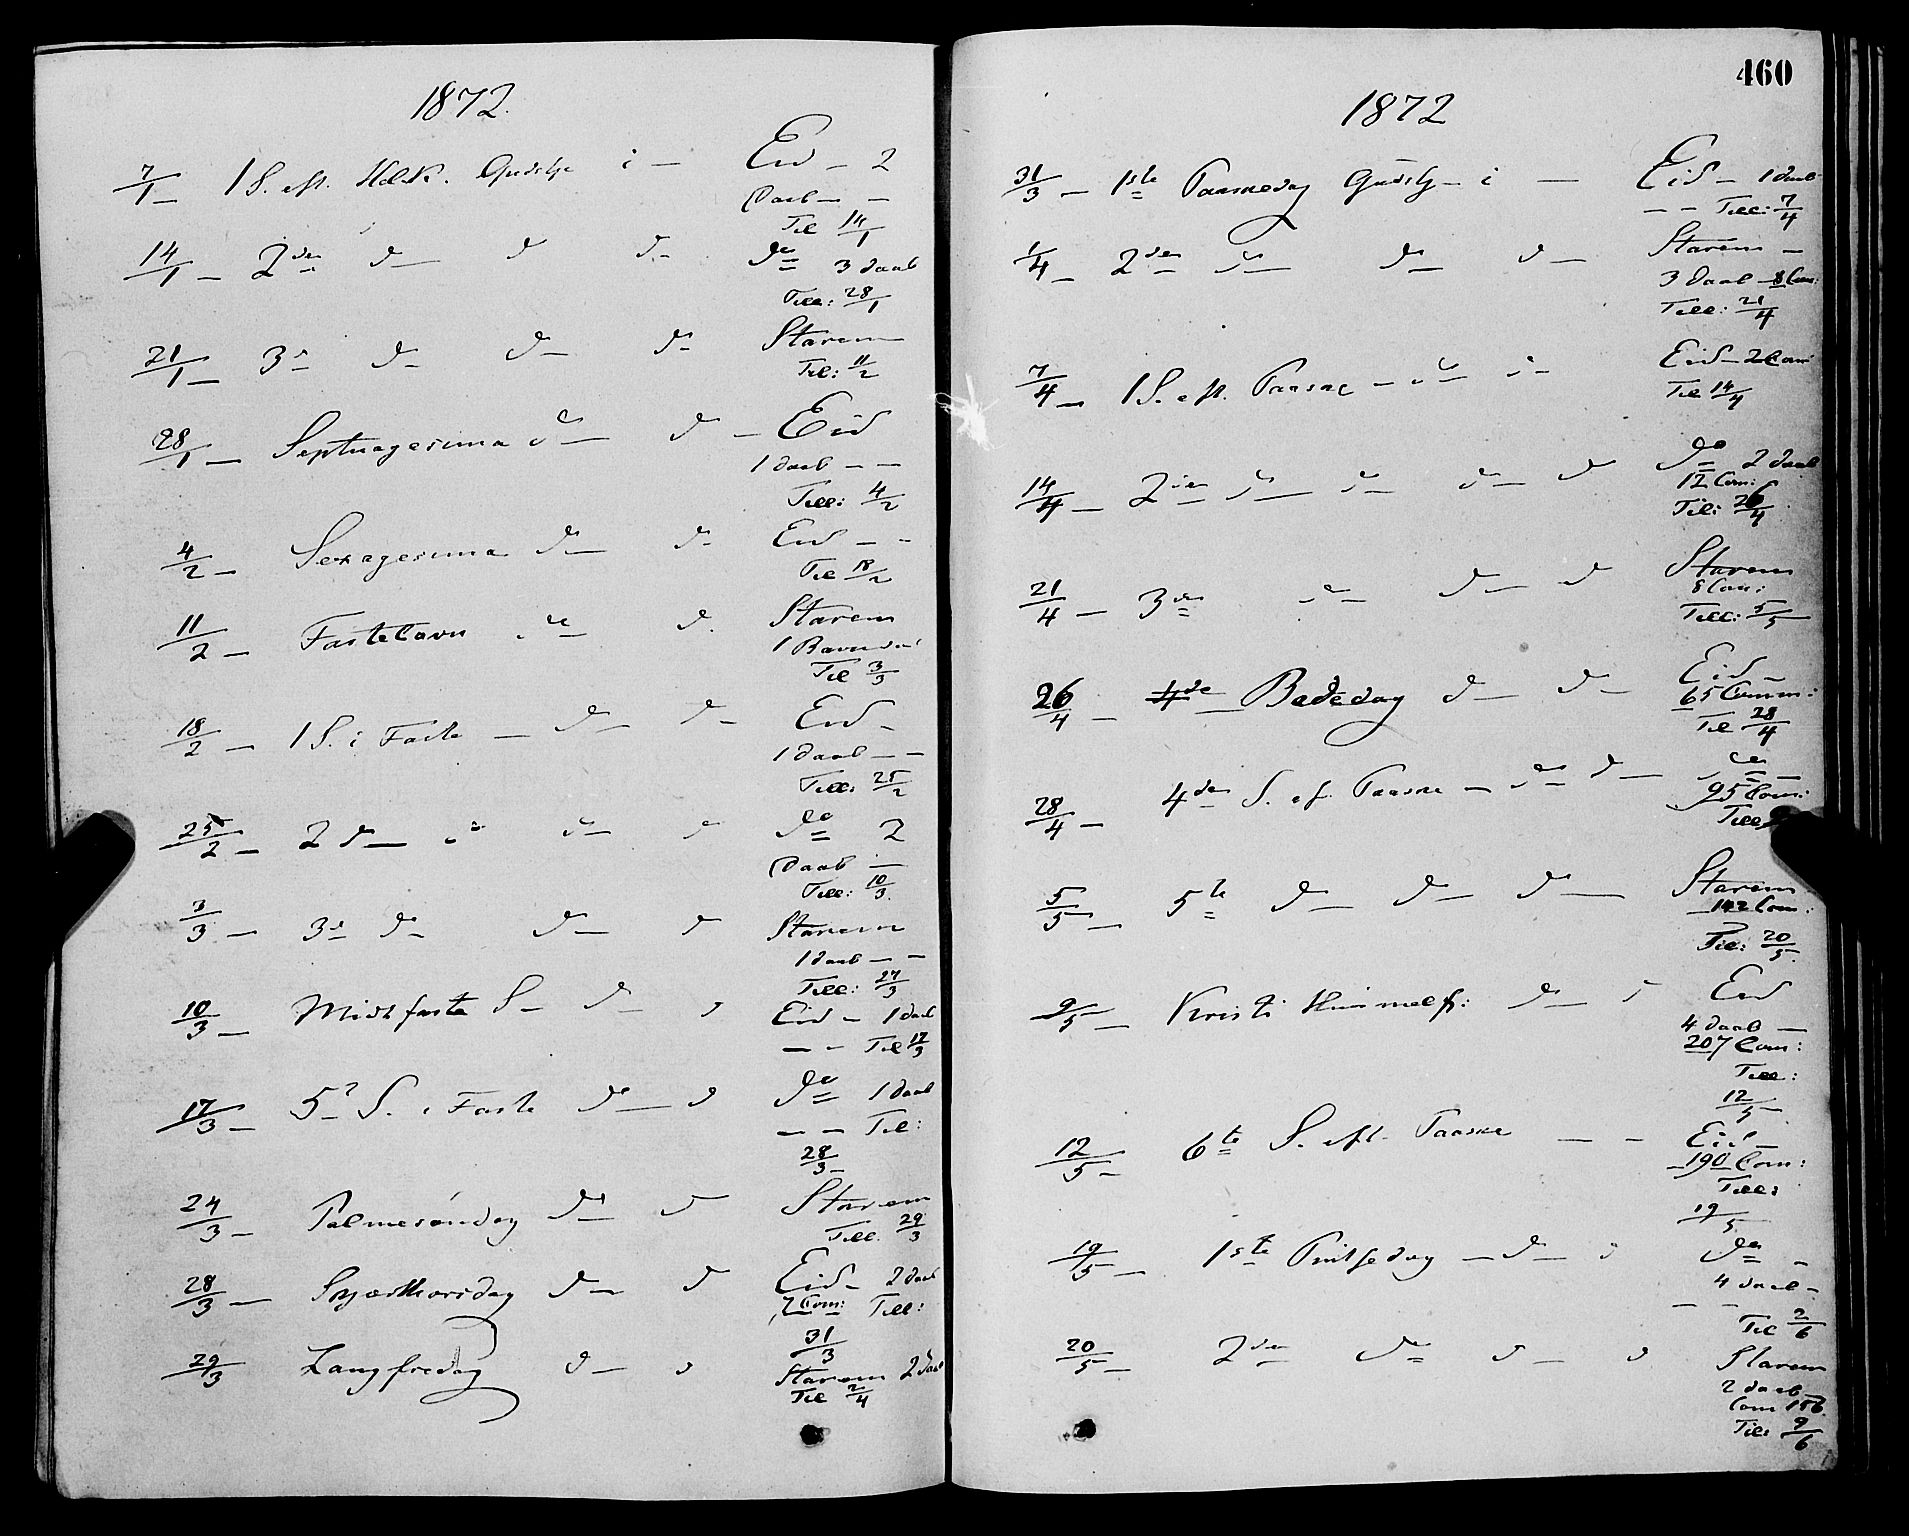 1872.
7/1 — 1 S. eft. H.3.K. Gudstje i — Eid — 2
Daab — —
Til 14/1
14/1 — 2den d — d d — do 3 daab
Till: 28/1
21/1 — 3d d — d — d — Starem
Til: 11/2
28/1 — Septuagesima do — d — Eid
1 daab — —
Till: 4/2
4/2 — Sexagesima d — d — Eid — —
Til 18/2
11/2 — Fastelavn do d. Starem
1 Barnedaab
Til 3/3
18/2 — 1 S. i Faste — d — d — Eid —
1 daab — —
Till: 25/2
25/2 — 2 d — do d — d do 2
Daab —
Till: 10/3.
3/3 — 3d d — d — d Starem
1 daab — —
Till: 24/3
10/3 — Midtfaste S — d — d Eid — 1 daab
— — Til 17/3
17/3 — 5t S. i Faste d — d do 1 daab
— — Til:
28/3 —
24/3 — Palmesøndag do — d Starem
Till: 29/3
28/3 — Skjærthorsdag d — d Eid — 2 daab
7 Com: Till:
31/3
29/3 Langfredag d — d Starem 2 daab
Til 2/4
460
1872
31/3 — 1ste Paaskedag Gudstj — i — Eid — 1 daab
— — Till: 7/4
1/4 — 2den d — d — d — Starem —
3 Daab — 8 Com:
Till: 21/4
7/4 — 1 S. eft. Paaske — do — d — Eid — 2 Com
Til 14/4
14/4 — 2den d — d — d — d do 2 daab
12 Com:
Til: 26/4
21/4 — 3die d — d — d Starem
8 Com:
Till: 5/5
26/4 — 4de Bededag d — d — Eid —
65 Comm:
Til 28/4
28/4 — 4de S. ef. Paaske — do d — do —
95 Com:
Till
5/5 — 5te d — d — d — Starem
142 Com:
Til: 20/5.
9/5 — Kristi Himmelf: d — d Eid
4 daab —
207 Com:
Till:
12/5 —
12/5 — 6te S. eft. Paaske — — Eid —
190 Com:
Till:
19/5
19/5 — 1ste Pintsedag — d — d do —
4 daab —
— — Til 2/6
20/5 — 2den do d — d Starem
2 daab —
Com 156.
Til: 9/6